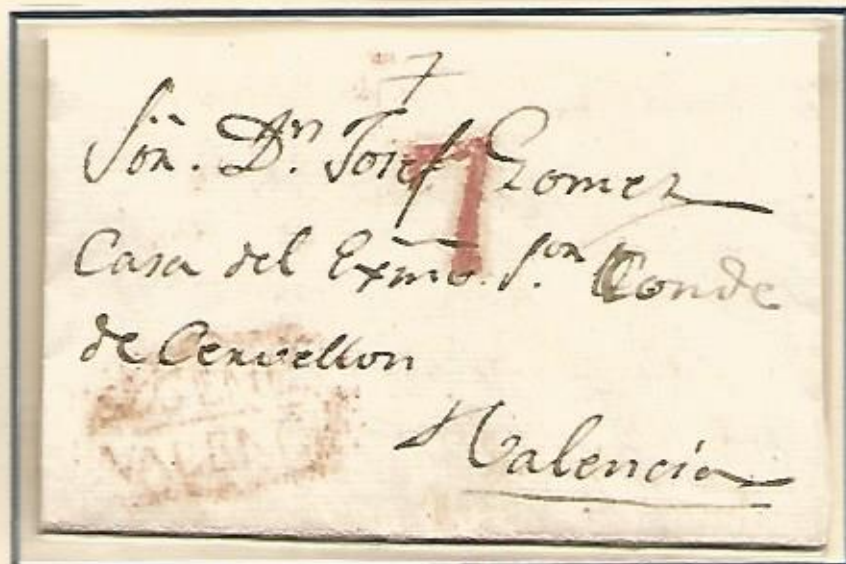 7
Sōr. Dⁿ. Josef Gomez
7
Casa del Exm̄o. S.ᵒʳ Conde
de Cervellon
Valencia